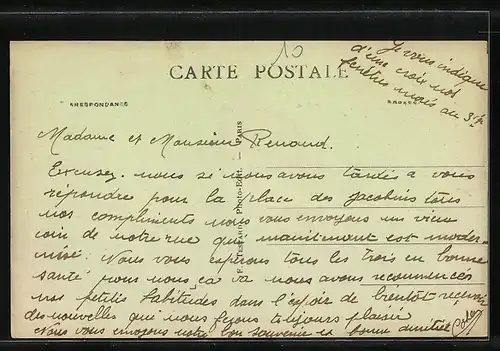 10
Je vous indique
d'une croix nos
fenêtres mais au 3e
CARTE POSTALE
CORRESPONDANCE
ADRESSE
Madame et Monsieur Renaud.
Excusez-nous si nous avons tardés a vous
répondre pour la place des Jacobins tous
nos compliments nous vous envoyons un vieux
coin de notre rue qui maintenant est moder-
nisé. Nous vous espérons tous les trois en bonne
santé pour nous ça va nous avons recommencés
nos petites habitudes dans l'espoir de bientôt recevoir
des nouvelles qui nous feçons toujours plaisir
Nous vous envoyons notre bon souvenir et bonne amitiée
Photo-Édit. - PARIS